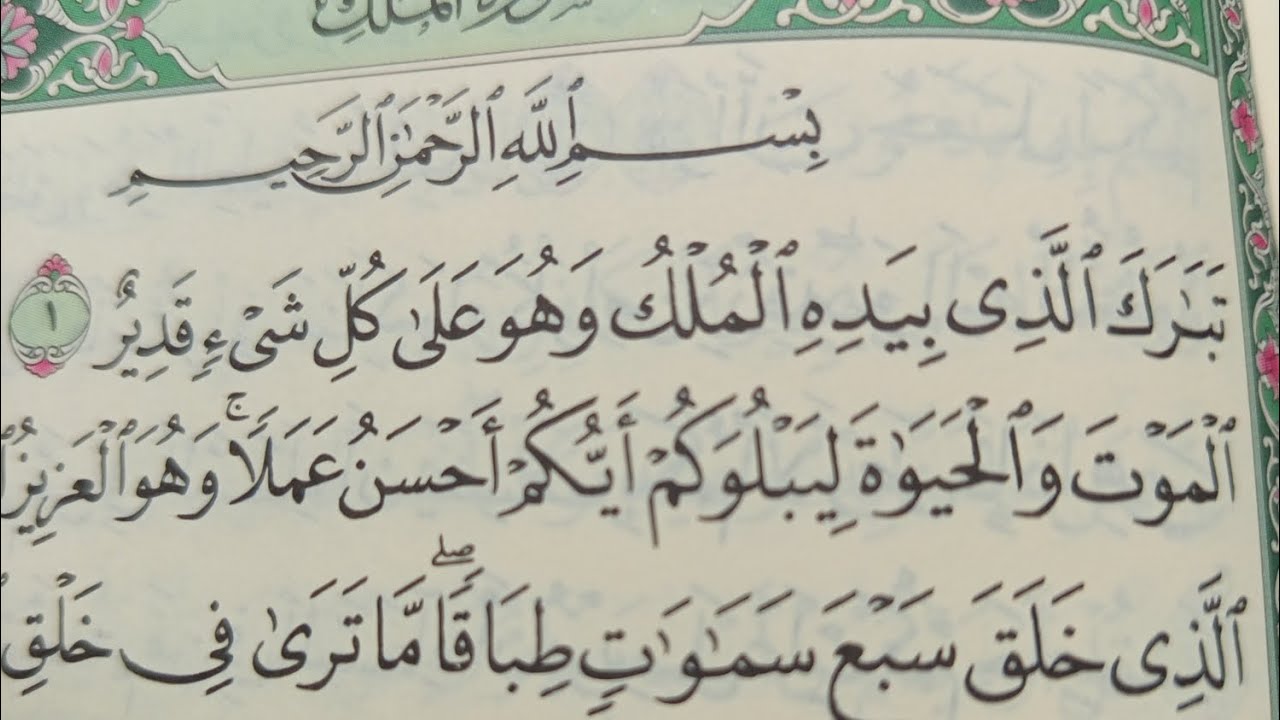 سُورَةُ الْمُلْكِ
بِسْمِ ٱللَّهِ ٱلرَّحْمَٰنِ ٱلرَّحِيمِ
تَبَٰرَكَ ٱلَّذِى بِيَدِهِ ٱلْمُلْكُ وَهُوَ عَلَىٰ كُلِّ شَىْءٍ قَدِيرٌ ١
ٱلْمَوْتَ وَٱلْحَيَوٰةَ لِيَبْلُوَكُمْ أَيُّكُمْ أَحْسَنُ عَمَلًا ۚ وَهُوَ ٱلْعَزِيزُ
ٱلَّذِى خَلَقَ سَبْعَ سَمَٰوَٰتٍ طِبَاقًا ۖ مَّا تَرَىٰ فِى خَلْقِ